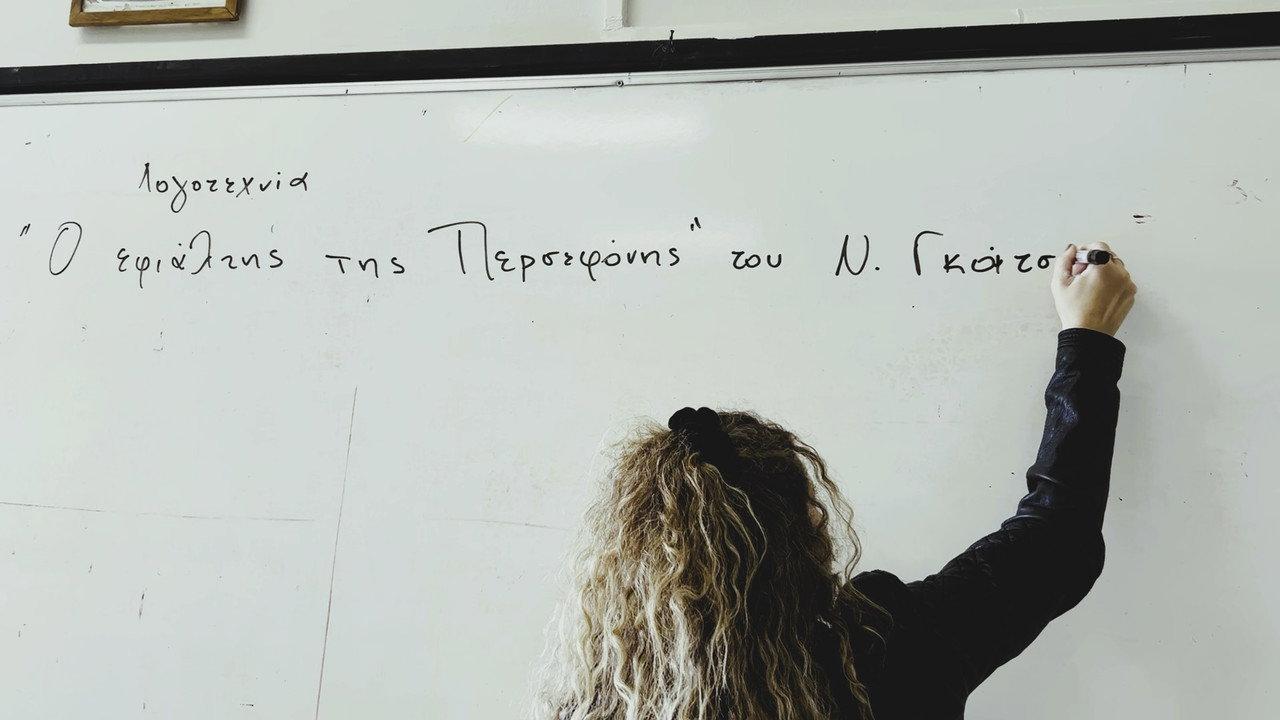 Λογοτεχνία
"Ο εφιάλτης της Περσεφόνης" του Ν. Γκάτσο